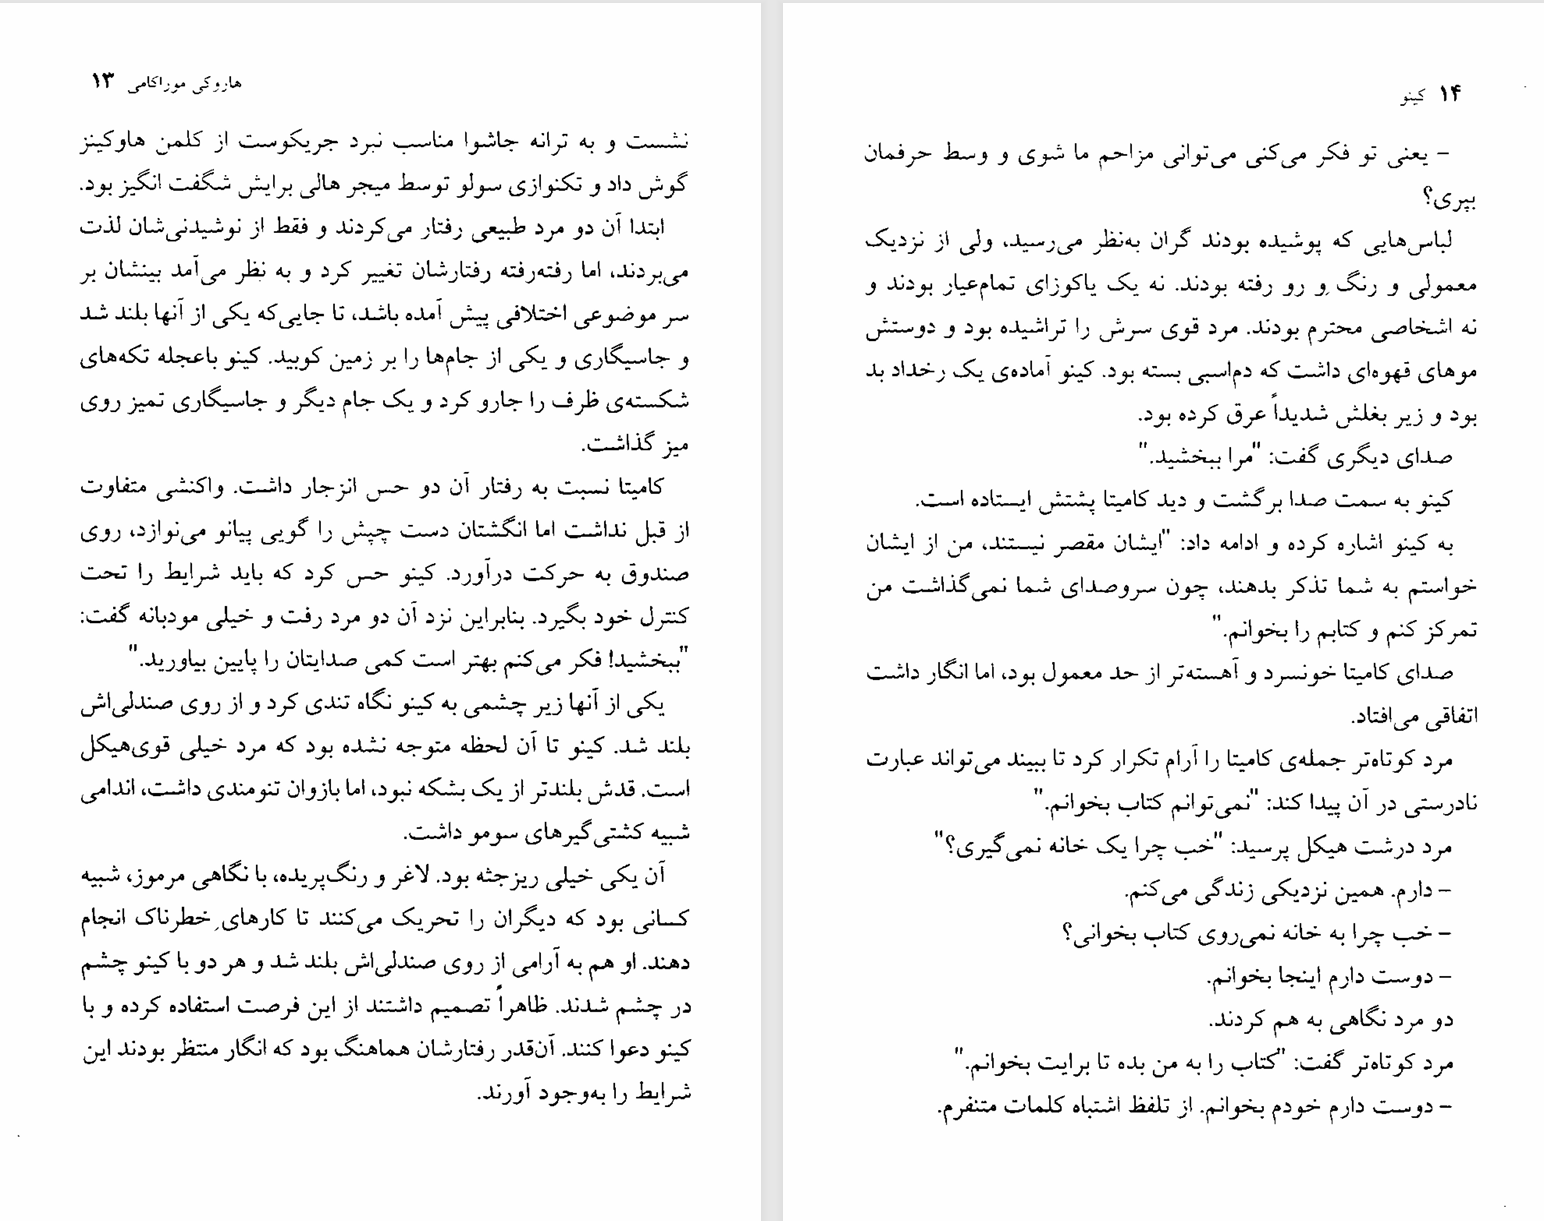 هاروکی موراکامی ۱۳
نشست و به ترانه جاشوا مناسب نبرد جریکوست از کلمن هاوکینز
گوش داد و تکنوازی سولو توسط میجر هالی برایش شگفت انگیز بود.
ابتدا آن دو مرد طبیعی رفتار می‌کردند و فقط از نوشیدنی‌شان لذت
می‌بردند، اما رفته‌رفته رفتارشان تغییر کرد و به نظر می‌آمد بینشان بر
سر موضوعی اختلافی پیش آمده باشد، تا جایی‌که یکی از آنها بلند شد
و جاسیگاری و یکی از جام‌ها را بر زمین کوبید. کینو باعجله تکه‌های
شکسته‌ی ظرف را جارو کرد و یک جام دیگر و جاسیگاری تمیز روی
میز گذاشت.
کامیتا نسبت به رفتار آن دو حس انزجار داشت. واکنشی متفاوت
از قبل نداشت اما انگشتان دست چپش را گویی پیانو می‌نوازد، روی
صندوق به حرکت درآورد. کینو حس کرد که باید شرایط را تحت
کنترل خود بگیرد. بنابراین نزد آن دو مرد رفت و خیلی مودبانه گفت:
"ببخشید! فکر می‌کنم بهتر است کمی صدایتان را پایین بیاورید."
یکی از آنها زیر چشمی به کینو نگاه تندی کرد و از روی صندلی‌اش
بلند شد. کینو تا آن لحظه متوجه نشده بود که مرد خیلی قوی‌هیکل
است. قدش بلندتر از یک بشکه نبود، اما بازوان تنومندی داشت، اندامی
شبیه کشتی‌گیرهای سومو داشت.
آن یکی خیلی ریزجثه بود. لاغر و رنگ‌پریده، با نگاهی مرموز، شبیه
کسانی بود که دیگران را تحریک می‌کنند تا کارهای خطرناک انجام
دهند. او هم به آرامی از روی صندلی‌اش بلند شد و هر دو با کینو چشم
در چشم شدند. ظاهراً تصمیم داشتند از این فرصت استفاده کرده و با
کینو دعوا کنند. آن‌قدر رفتارشان هماهنگ بود که انگار منتظر بودند این
شرایط را به‌وجود آورند.
۱۴ کینو
– یعنی تو فکر می‌کنی می‌توانی مزاحم ما شوی و وسط حرفمان
بپری؟
لباس‌هایی که پوشیده بودند گران به‌نظر می‌رسید، ولی از نزدیک
معمولی و رنگ و رو رفته بودند. نه یک یاکوزای تمام‌عیار بودند و
نه اشخاصی محترم بودند. مرد قوی سرش را تراشیده بود و دوستش
موهای قهوه‌ای داشت که دم‌اسبی بسته بود. کینو آماده‌ی یک رخداد بد
بود و زیر بغلش شدیداً عرق کرده بود.
صدای دیگری گفت: "مرا ببخشید."
کینو به سمت صدا برگشت و دید کامیتا پشتش ایستاده است.
به کینو اشاره کرده و ادامه داد: "ایشان مقصر نیستند، من از ایشان
خواستم به شما تذکر بدهند، چون سروصدای شما نمی‌گذاشت من
تمرکز کنم و کتابم را بخوانم."
صدای کامیتا خونسرد و آهسته‌تر از حد معمول بود، اما انگار داشت
اتفاقی می‌افتاد.
مرد کوتاه‌تر جمله‌ی کامیتا را آرام تکرار کرد تا ببیند می‌تواند عبارت
نادرستی در آن پیدا کند: "نمی‌توانم کتاب بخوانم."
مرد درشت هیکل پرسید: "خب چرا یک خانه نمی‌گیری؟"
– دارم. همین نزدیکی زندگی می‌کنم.
– خب چرا به خانه نمی‌روی کتاب بخوانی؟
– دوست دارم اینجا بخوانم.
دو مرد نگاهی به هم کردند.
مرد کوتاه‌تر گفت: "کتاب را به من بده تا برایت بخوانم."
– دوست دارم خودم بخوانم. از تلفظ اشتباه کلمات متنفرم.